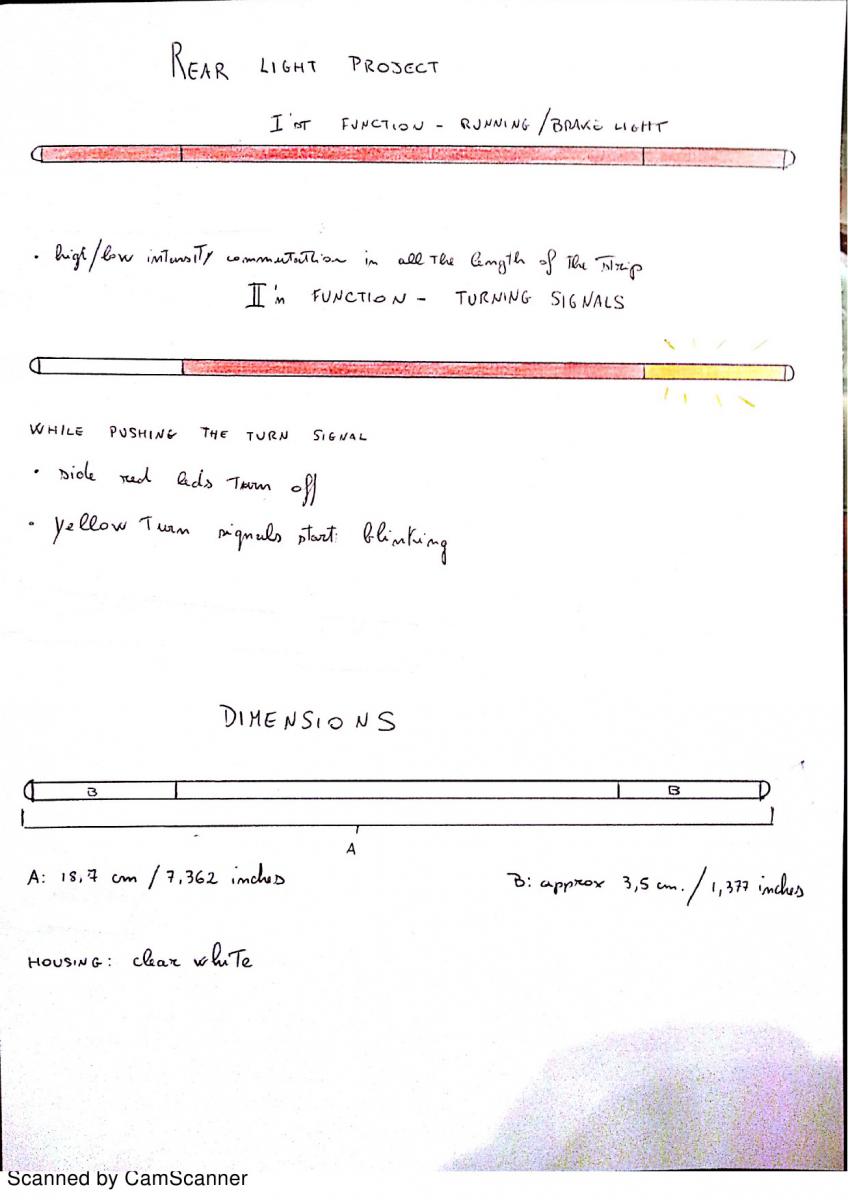 REAR LIGHT PROJECT
I'st FUNCTION - RUNNING/BRAKE LIGHT
• high/low intensity commutathion in all the length of the strip
II'n FUNCTION - TURNING SIGNALS
WHILE PUSHING THE TURN SIGNAL
• side red leds turn off
• yellow turn signals start blinking
DIMENSIONS
B B
A
A: 18,7 cm / 7,362 inches B: approx 3,5 cm. / 1,377 inches
HOUSING: clear white
Scanned by CamScanner